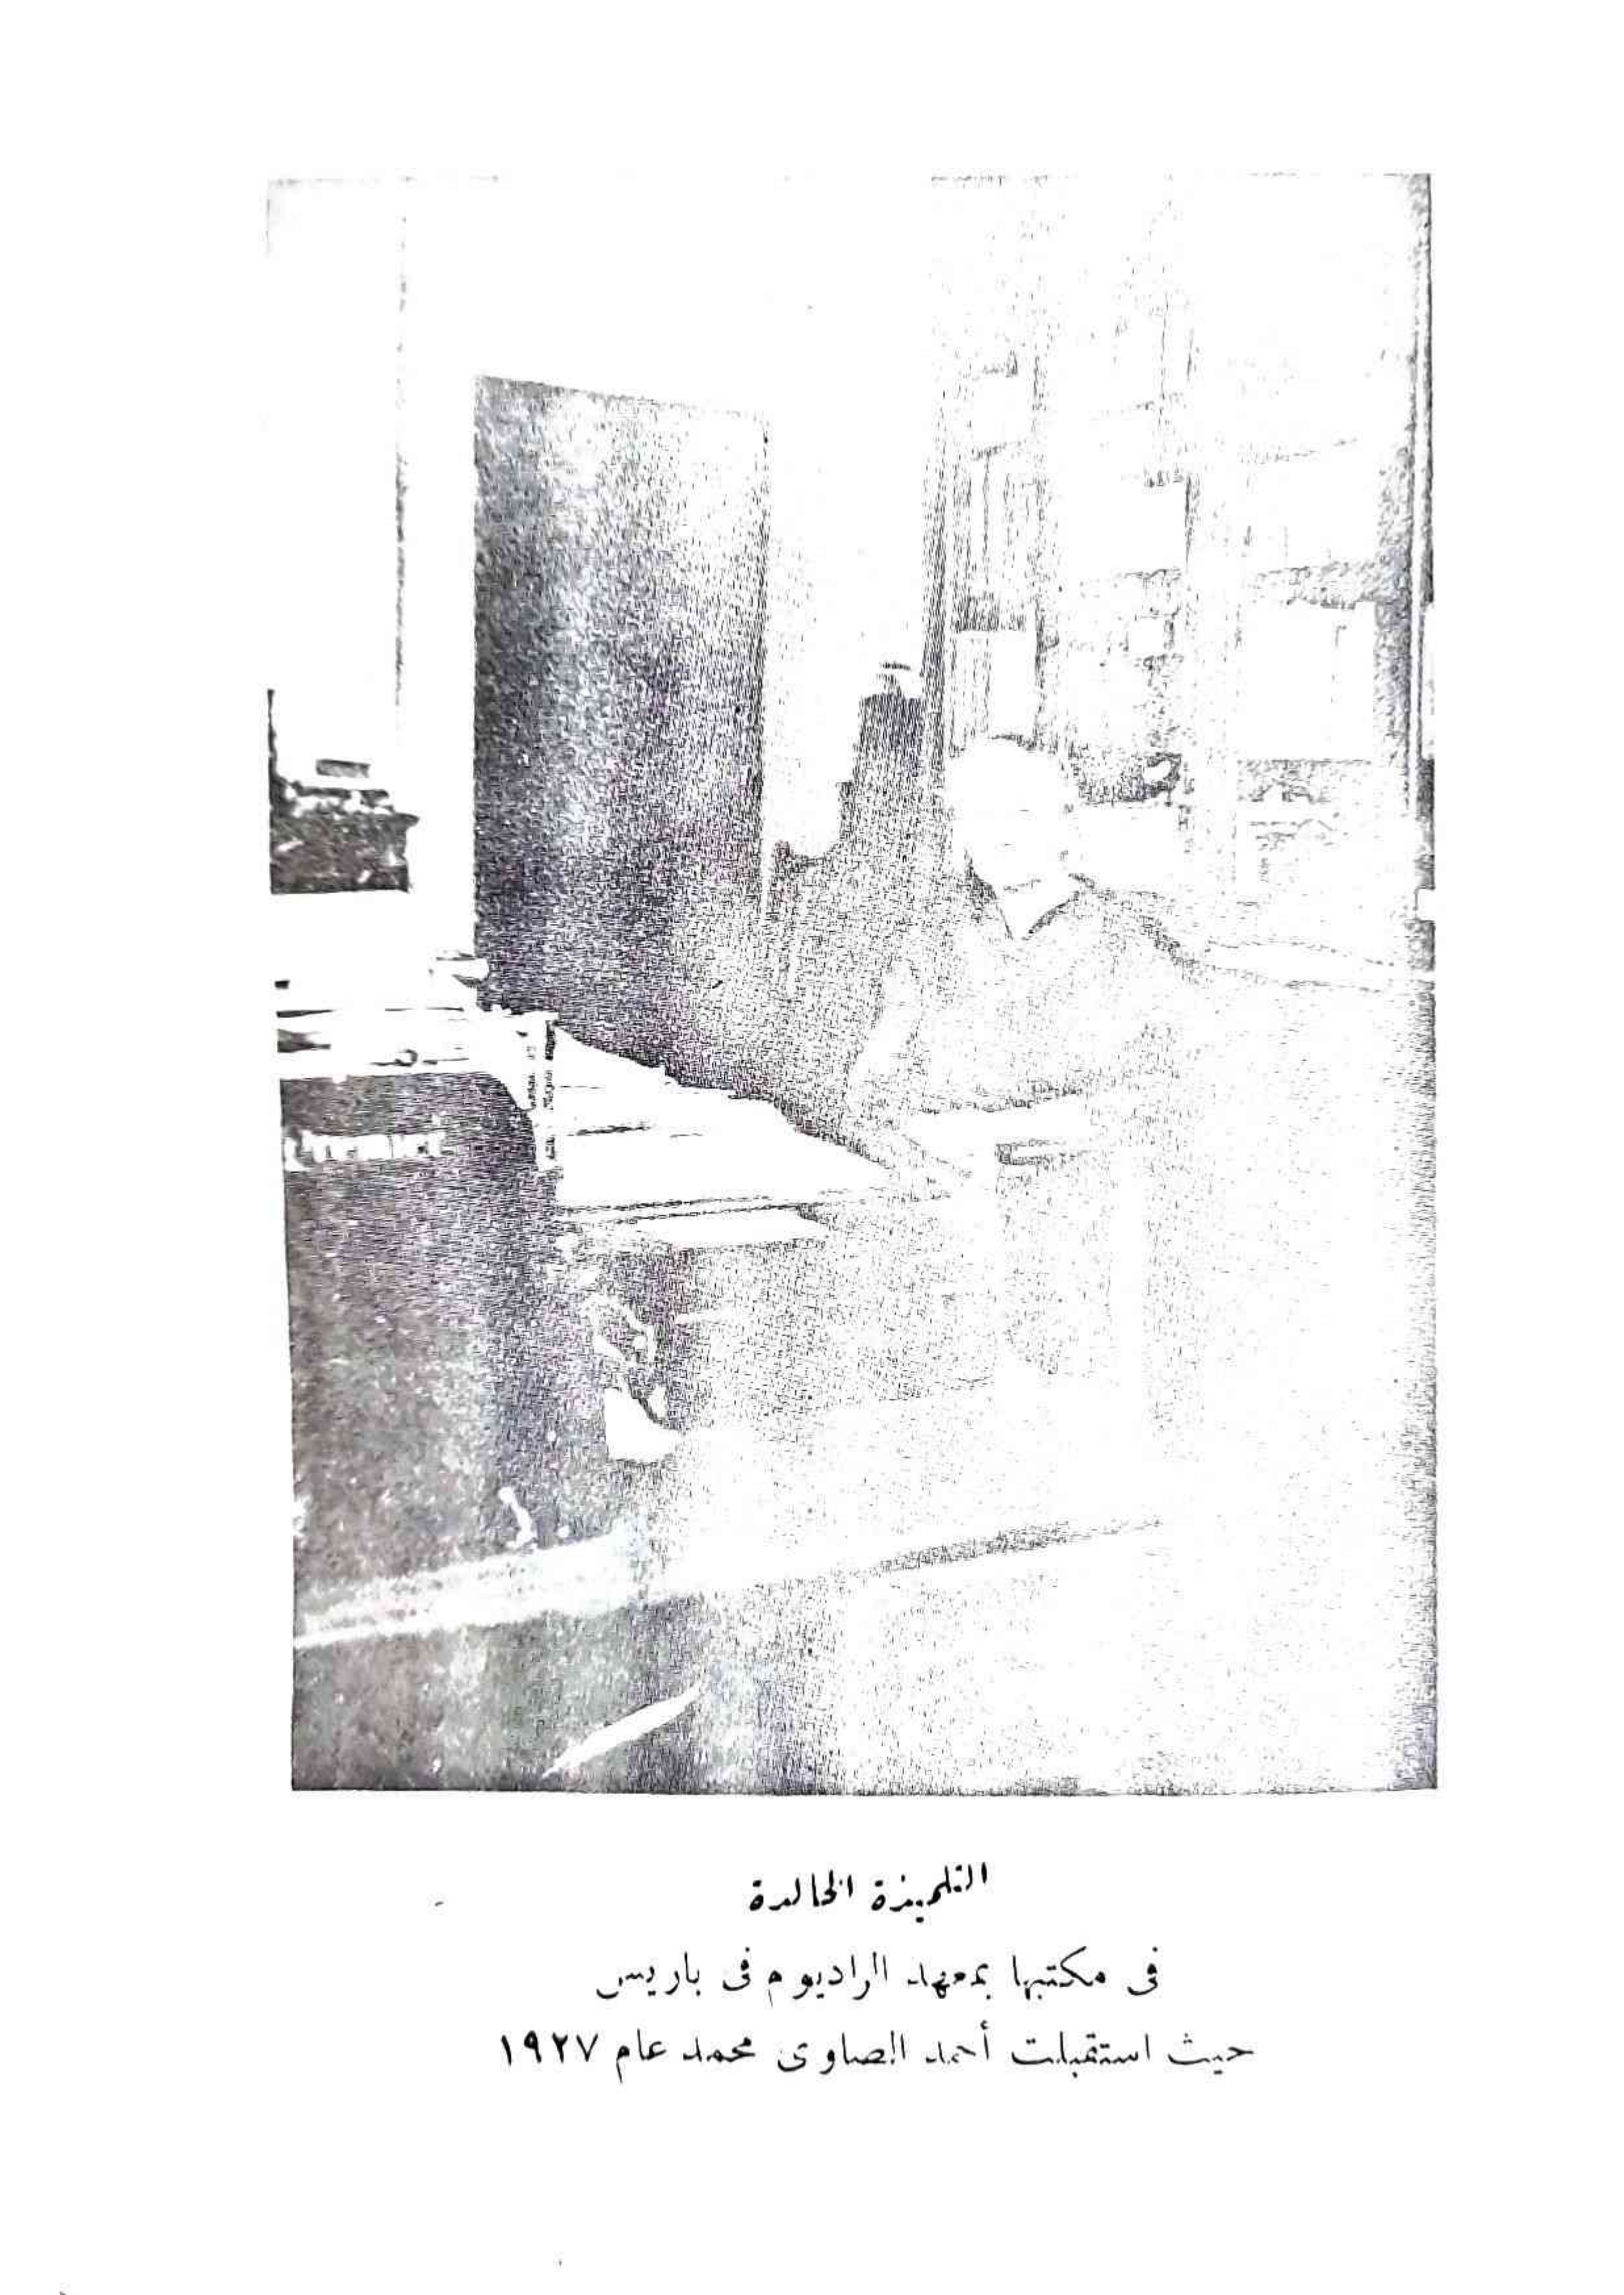 التلميذة الخالدة
فى مكتبها بمعهد الراديوم فى باريس
حيث استقبلت أحمد الصاوى محمد عام ١٩٢٧